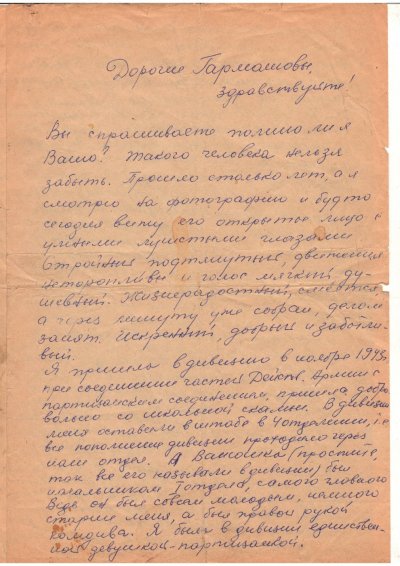 Дорогие Гармашовы,
здравствуйте!
Вы спрашиваете помню ли я
Вашо? Такого человека нельзя
забыть. Прошло столько лет, а я
смотрю на фотографию и будто
сегодня вижу его открытое лицо с
умными лучистыми глазами
Стройный подтянутый, движения
неторопливы и голос мягкий ду-
шевный. Жизнерадостный, смеётся
а через минуту уже собран, делом
занят. Искренний, добрый и заботли-
вый.
Я пришла в дивизию в ноябре 1943г.
при соединении частей Действ. Армии с
партизанским соединением, пришла добро
вольно со школьной скамьи. В дивизии
меня оставили в штабе в 4отделении, т.е.
все пополнение дивизии проходило через
наш отдел. А Ванюшка (простите,
так все его называли в дивизии) был
начальником 1отдела, самого главного
Ведь он был совсем молодым, немного
старше меня, а был правой рукой
комдива. Я была в дивизии единствен-
ной девушкой-партизанкой.